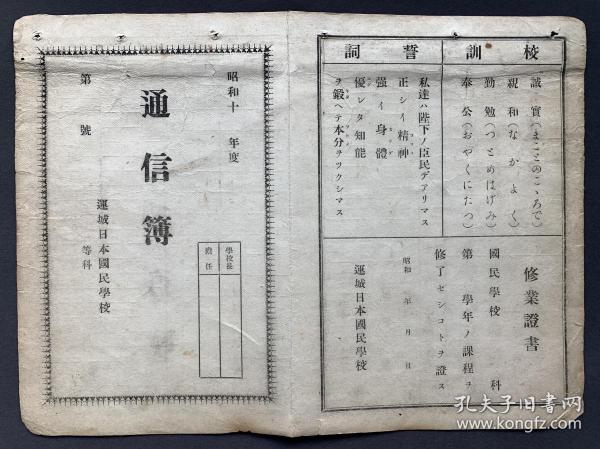 校訓
誠實(まことのこゝろで)
親和(なかよく)
勤勉(つとめはげみ)
奉公(おやくにたつ)
誓詞
私達ハ陛下ノ臣民デアリマス
正シイ精神
強イ身體
優レタ知能
ヲ鍛ヘテ本分ヲツクシマス
修業證書
國民學校 科
第 學年ノ課程ヲ
修了セシコトヲ證ス
昭和 年 月 日
運城日本國民學校
昭和十 年度
通信簿
第 號
運城日本國民學校
等科
學校長
擔任
孔夫子旧书网
www.kongfz.com